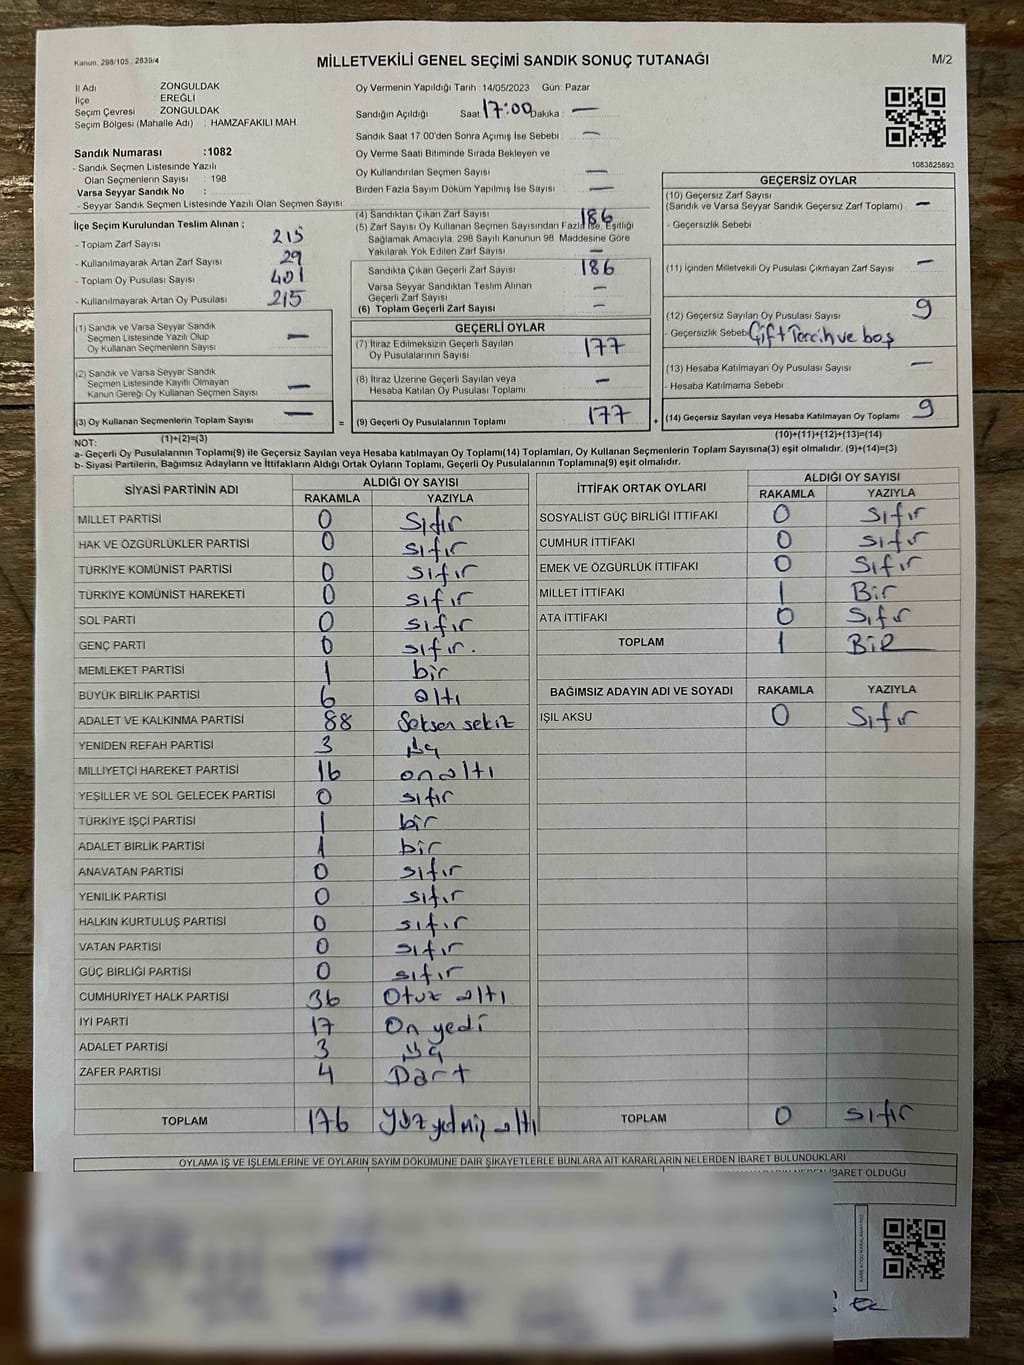 Kanun: 298/105, 2839/4
MİLLETVEKİLİ GENEL SEÇİMİ SANDIK SONUÇ TUTANAĞI
M/2
İl Adı ZONGULDAK
İlçe EREĞLİ
Seçim Çevresi ZONGULDAK
Seçim Bölgesi (Mahalle Adı) : HAMZAFAKILI MAH.
Sandık Numarası :1082
- Sandık Seçmen Listesinde Yazılı
Olan Seçmenlerin Sayısı : 198
Varsa Seyyar Sandık No :
- Seyyar Sandık Seçmen Listesinde Yazılı Olan Seçmen Sayısı
İlçe Seçim Kurulundan Teslim Alınan ;
- Toplam Zarf Sayısı 215
- Kullanılmayarak Artan Zarf Sayısı 29
- Toplam Oy Pusulası Sayısı 401
- Kullanılmayarak Artan Oy Pusulası 215
(1) Sandık ve Varsa Seyyar Sandık
Seçmen Listesinde Yazılı Olup
Oy Kullanan Seçmenlerin Sayısı —
(2) Sandık ve Varsa Seyyar Sandık
Seçmen Listesinde Kayıtlı Olmayan
Kanun Gereği Oy Kullanan Seçmen Sayısı —
(3) Oy Kullanan Seçmenlerin Toplam Sayısı — =
(1)+(2)=(3)
Oy Vermenin Yapıldığı Tarih :14/05/2023 Gün: Pazar
Sandığın Açıldığı Saat 17:00 Dakika : —
Sandık Saat 17.00'den Sonra Açımış İse Sebebi —
Oy Verme Saati Bitiminde Sırada Bekleyen ve
Oy Kullandırılan Seçmen Sayısı —
Birden Fazla Sayım Döküm Yapılmış İse Sayısı —
(4) Sandıktan Çıkan Zarf Sayısı 186
(5) Zarf Sayısı Oy Kullanan Seçmen Sayısından Fazla İse, Eşitliği
Sağlamak Amacıyla, 298 Sayılı Kanunun 98. Maddesine Göre
Yakılarak Yok Edilen Zarf Sayısı —
Sandıkta Çıkan Geçerli Zarf Sayısı 186
Varsa Seyyar Sandıktan Teslim Alınan
Geçerli Zarf Sayısı —
(6) Toplam Geçerli Zarf Sayısı —
GEÇERLİ OYLAR
(7) İtiraz Edilmeksizin Geçerli Sayılan
Oy Pusulalarının Sayısı 177
(8) İtiraz Üzerine Geçerli Sayılan veya
Hesaba Katılan Oy Pusulası Toplamı —
(9) Geçerli Oy Pusulalarının Toplamı 177 +
1083825893
GEÇERSİZ OYLAR
(10) Geçersiz Zarf Sayısı
(Sandık ve Varsa Seyyar Sandık Geçersiz Zarf Toplamı) —
- Geçersizlik Sebebi
(11) İçinden Milletvekili Oy Pusulası Çıkmayan Zarf Sayısı —
(12) Geçersiz Sayılan Oy Pusulası Sayısı 9
- Geçersizlik Sebebi Çift Tercih ve boş
(13) Hesaba Katılmayan Oy Pusulası Sayısı —
- Hesaba Katılmama Sebebi
(14) Geçersiz Sayılan veya Hesaba Katılmayan Oy Toplamı 9
(10)+(11)+(12)+(13)=(14)
NOT:
a- Geçerli Oy Pusulalarının Toplamı(9) ile Geçersiz Sayılan veya Hesaba katılmayan Oy Toplamı(14) Toplamları, Oy Kullanan Seçmenlerin Toplam Sayısına(3) eşit olmalıdır. (9)+(14)=(3)
b- Siyasi Partilerin, Bağımsız Adayların ve İttifakların Aldığı Ortak Oyların Toplamı, Geçerli Oy Pusulalarının Toplamına(9) eşit olmalıdır.
SİYASİ PARTİNİN ADI ALDIĞI OY SAYISI
RAKAMLA YAZIYLA
MİLLET PARTİSİ 0 Sıfır
HAK VE ÖZGÜRLÜKLER PARTİSİ 0 sıfır
TÜRKİYE KOMÜNİST PARTİSİ 0 sıfır
TÜRKİYE KOMÜNİST HAREKETİ 0 sıfır
SOL PARTİ 0 sıfır
GENÇ PARTİ 0 sıfır.
MEMLEKET PARTİSİ 1 bir
BÜYÜK BİRLİK PARTİSİ 6 altı
ADALET VE KALKINMA PARTİSİ 88 Seksen sekiz
YENİDEN REFAH PARTİSİ 3 üç
MİLLİYETÇİ HAREKET PARTİSİ 16 on altı
YEŞİLLER VE SOL GELECEK PARTİSİ 0 sıfır
TÜRKİYE İŞÇİ PARTİSİ 1 bir
ADALET BİRLİK PARTİSİ 1 bir
ANAVATAN PARTİSİ 0 sıfır
YENİLİK PARTİSİ 0 sıfır
HALKIN KURTULUŞ PARTİSİ 0 sıfır
VATAN PARTİSİ 0 sıfır
GÜÇ BİRLİĞİ PARTİSİ 0 sıfır
CUMHURİYET HALK PARTİSİ 36 Otuz altı
İYİ PARTİ 17 On yedi
ADALET PARTİSİ 3 üç
ZAFER PARTİSİ 4 Dört
TOPLAM 176 Yüz yetmiş altı
İTTİFAK ORTAK OYLARI ALDIĞI OY SAYISI
RAKAMLA YAZIYLA
SOSYALİST GÜÇ BİRLİĞİ İTTİFAKI 0 Sıfır
CUMHUR İTTİFAKI 0 sıfır
EMEK VE ÖZGÜRLÜK İTTİFAKI 0 Sıfır
MİLLET İTTİFAKI 1 Bir
ATA İTTİFAKI 0 Sıfır
TOPLAM 1 BİR
BAĞIMSIZ ADAYIN ADI VE SOYADI RAKAMLA YAZIYLA
IŞIL AKSU 0 Sıfır
TOPLAM 0 sıfır
OYLAMA İŞ VE İŞLEMLERİNE VE OYLARIN SAYIM DÖKÜMÜNE DAİR ŞİKAYETLERLE BUNLARA AİT KARARLARIN NELERDEN İBARET BULUNDUKLARI
İBARET OLDUĞU